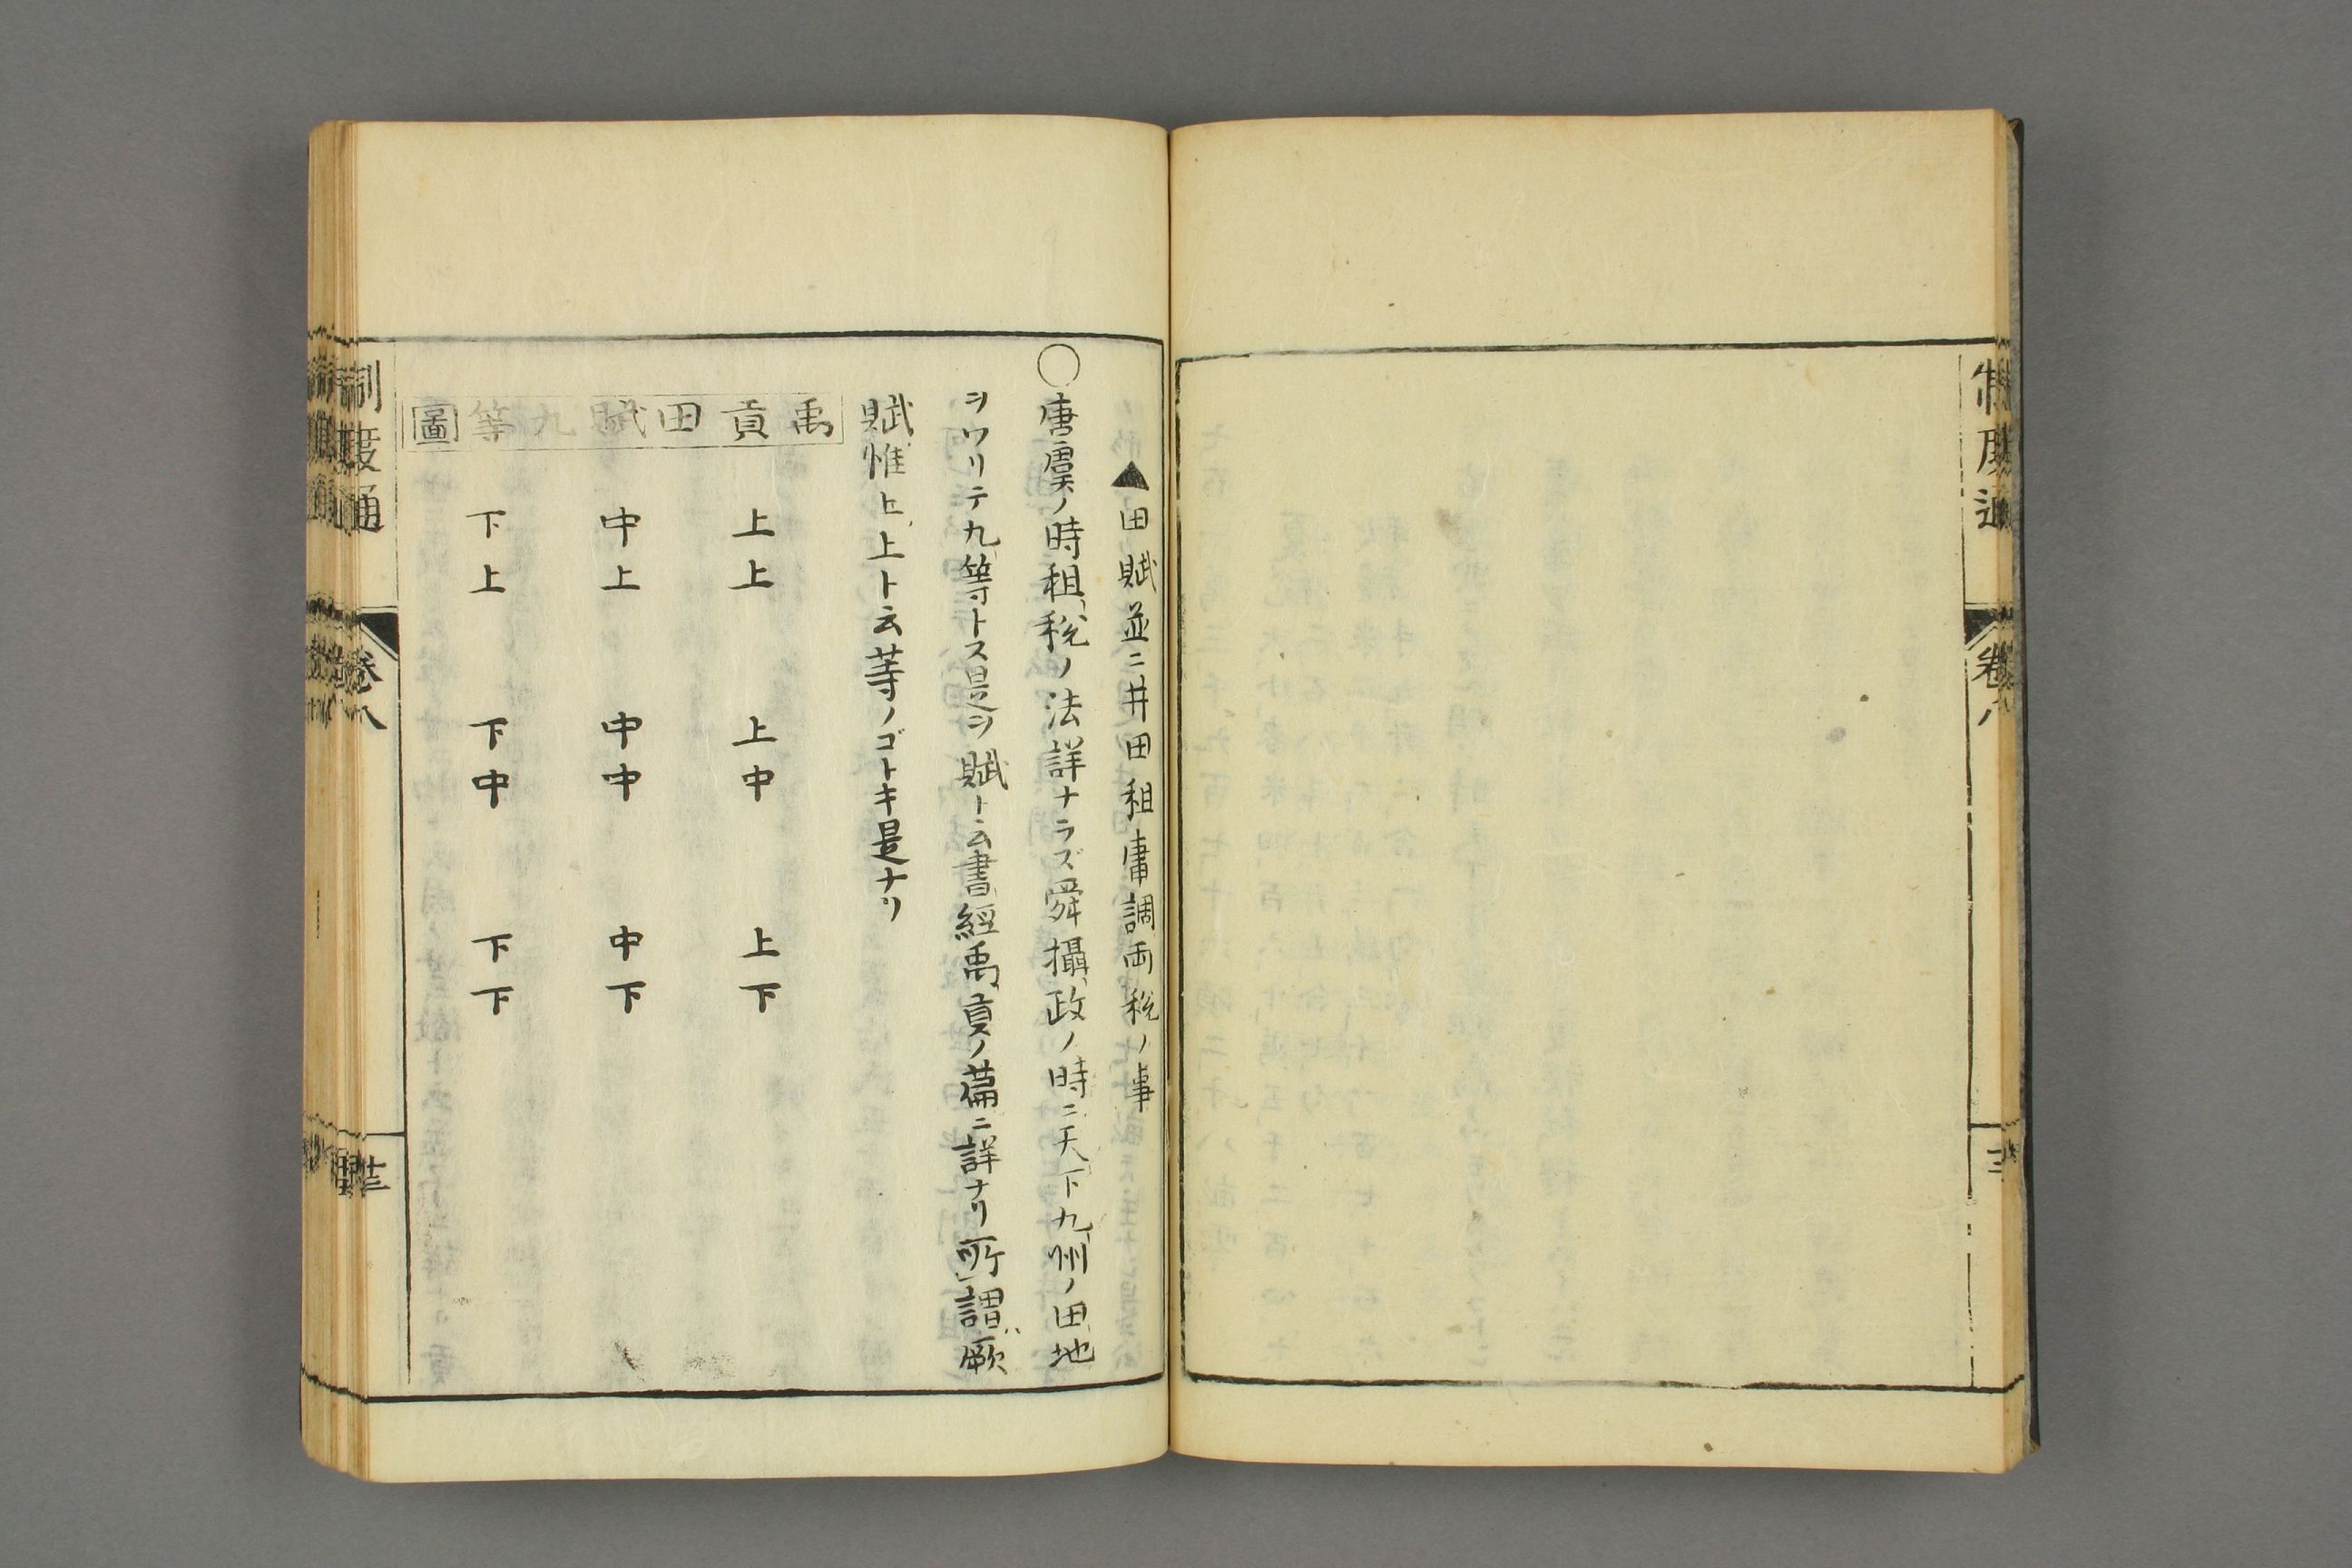 制度通
卷八
▲田賦並ニ井田租庸調両税ノ事
○唐虞ノ時租税ノ法詳ナラズ舜攝政ノ時ニ天下九州ノ田地
ヲワリテ九等トス是ヲ賦ト云書經禹貢ノ篇ニ詳ナリ所謂厥
賦惟上上ト云等ノゴトキ是ナリ
禹貢田賦九等圖
上上 上中 上下
中上 中中 中下
下上 下中 下下
制度通
卷八